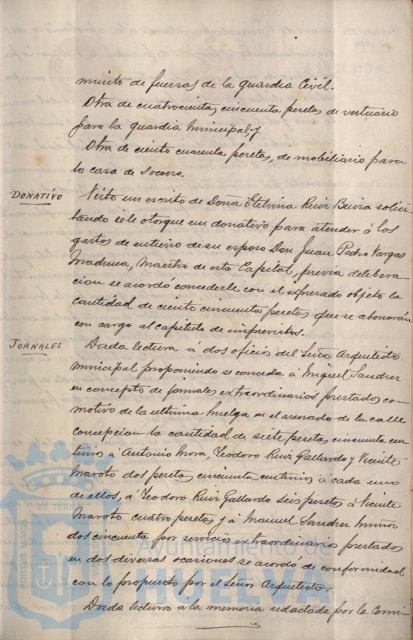 miento de fuerzas de la Guardia Civil.
Otra de cuatrocientas cincuenta pesetas de vestuario
para la Guardia Municipal; y
Otra de ciento cuarenta pesetas, de mobiliario para
la casa de Socorro.
DONATIVO
Visto un escrito de Doña Etelvina Ruiz Beira solici-
tando se le otorgue un donativo para atender á los
gastos de entierro de su esposo Don Juan Pedro Vargas
Madrusa, Maestro de esta Capital, previa delibera-
cion se acordó concederle con el expresado objeto la
cantidad de ciento cincuenta pesetas que se abonarán
con cargo al capitulo de imprevistos.
JORNALES
Dada lectura á dos oficios del Señor Arquitecto
Municipal proponiendo se conceda á Miguel Sandez
en concepto de jornales extraordinarios prestados con
motivo de la ultima huelga en el arenado de la calle
Concepcion la cantidad de siete pesetas cincuenta cen-
timos á Antonio Mora, Teodoro Ruiz Gallardo y Vicente
Maroto dos pesetas cincuenta centimos á cada uno
de ellos, á Teodoro Ruiz Gallardo seis pesetas á Vicente
Maroto cuatro pesetas y á Manuel Sandez Muñoz
dos cincuenta por servicio extraordinario prestados
en dos diversas ocasiones se acordo de conformidad
con lo propuesto por el Señor Arquitecto.
Dada lectura a la memoria redactada por la Comi-
PORTUS MARIS
ET TERRE
Ayuntamiento de
HUELVA